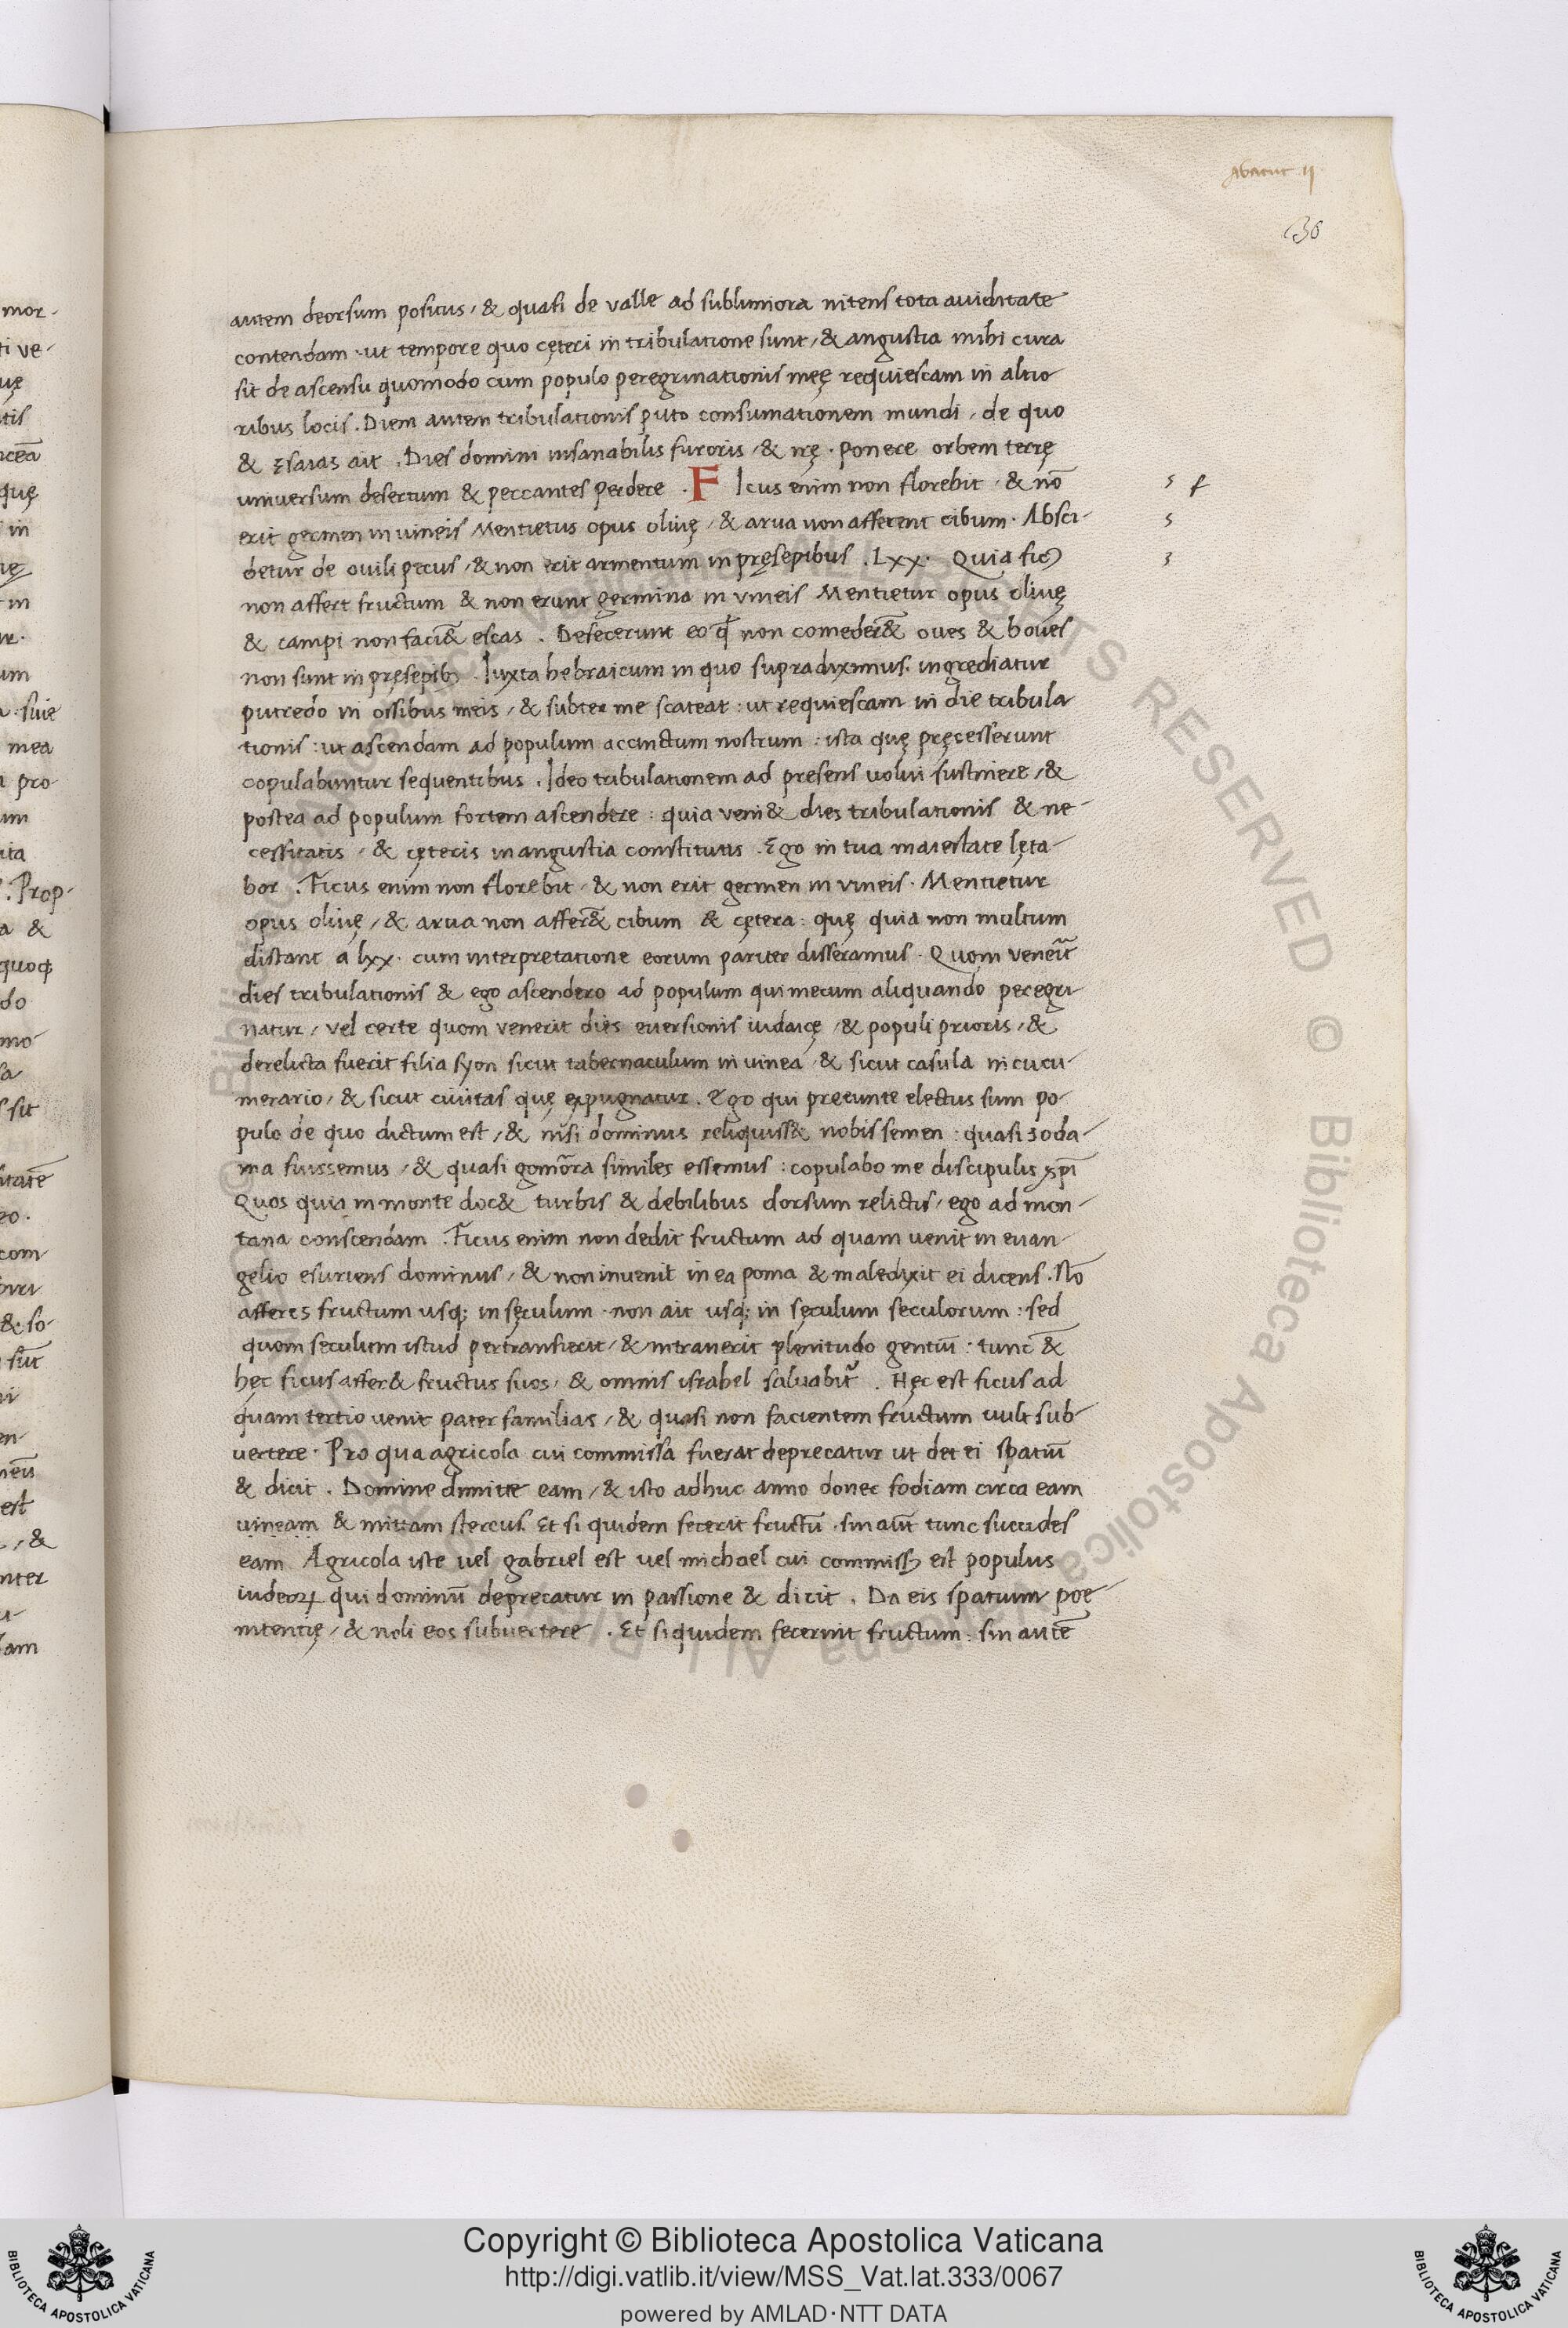 Abacuc II
30
autem deorsum positus, & quasi de valle ad sublimiora nitens tota auiditate
contendam · ut tempore quo cęteri in tribulatione sunt, & angustia mihi cura
sit de ascensu quomodo cum populo peregrinationis meę requiescam in altio
ribus locis. Diem autem tribulationis puto consumationem mundi, de quo
& Esaias ait. Dies domini insanabilis furoris, & irę · ponere orbem terrę
universum desertum & peccantes perdere . F Icus enim non florebit, & nō
erit germen in vineis Mentietus opus oliuę, & arua non afferent cibum. Absci-
detur de ovili pecus, & non erit armentum in pręsepibus . Lxx. Quia fic9
non affert fructum & non erunt germina in vineis Mentietur opus oliuę
& campi non faci&̄ escas . Defecerunt eo q̄ non comeder&̄ oves & boves
non sunt in pręsepib9 . Iuxta hebraicum in quo supradiximus. ingrediatur
putredo in ossibus meis, & subter me scateat: ut requiescam in die tribula
tionis: ut ascendam ad populum accinctum nostrum: ista quę pręcesserunt
copulabuntur sequentibus. Ideo tribulationem ad presens uolui sustinere, &
postea ad populum fortem ascendere: quia veni& dies tribulationis & ne-
cessitatis, & cęteris in angustia constitutis . Ego in tua maiestate lęta-
bor . Ficus enim non florebit, & non erit germen in vineis. Mentietur
opus oliuę, & arua non affer&̄ cibum & cętera: quę quia non multum
distant a lxx. cum interpretatione eorum pariter disseramus. Quom veneit̄
dies tribulationis & ego ascendero ad populum qui mecum aliquando peregri-
natur, vel certe quom venerit dies euersionis iudaicę, & populi prioris, &
derelicta fuerit filia syon sicut tabernaculum in uinea, & sicut casula in cucu-
merario, & sicut ciuitas quę expugnatur. Ego qui preeunte electus sum po-
pulo de quo dictum est, & nisi dominus reliquiss& nobis semen: quasi soda-
ma fuissemus, & quasi gomōra similes essemus: copulabo me discipulis xp̄i
Quos quia in monte doc& turbis & debilibus dorsum relictis, ego ad mon-
tana conscendam . Ficus enim non dedit fructum ad quam uenit in euan-
gelio esuriens dominus, & non inuenit in ea poma & maledixit ei dicens. Nō
afferes fructum usq; in sęculum · non ait usq; in sęculum seculorum: sed
quom seculum istud pertransierit, & intrauerit plenitudo gentiū: tunc &̄
hęc ficus affer& fructus suos, & omnis israhel saluabit᷑ . Hęc est ficus ad
quam tertio uenit pater familias, & quasi non facientem fructum uult sub-
vertere. Pro qua agricola cui commissa fuerat deprecatur ut det ei spatiū
& dicit . Domine dimitte eam, & isto adhuc anno donec fodiam circa eam
uineam & mittam stercus. Et si quidem fecerit fructū · sin aut̄ tunc succides
eam Agricola iste uel gabriel est uel michael cui commiss9 est populus
iudeoꝝ qui dominū deprecatur in passione & dicit . Da eis spatium poe-
nitentię, & noli eos subuertere . Et siquidem fecerint fructum: sin autē
Copyright © Biblioteca Apostolica Vaticana
http://digi.vatlib.it/view/MSS_Vat.lat.333/0067
powered by AMLAD·NTT DATA